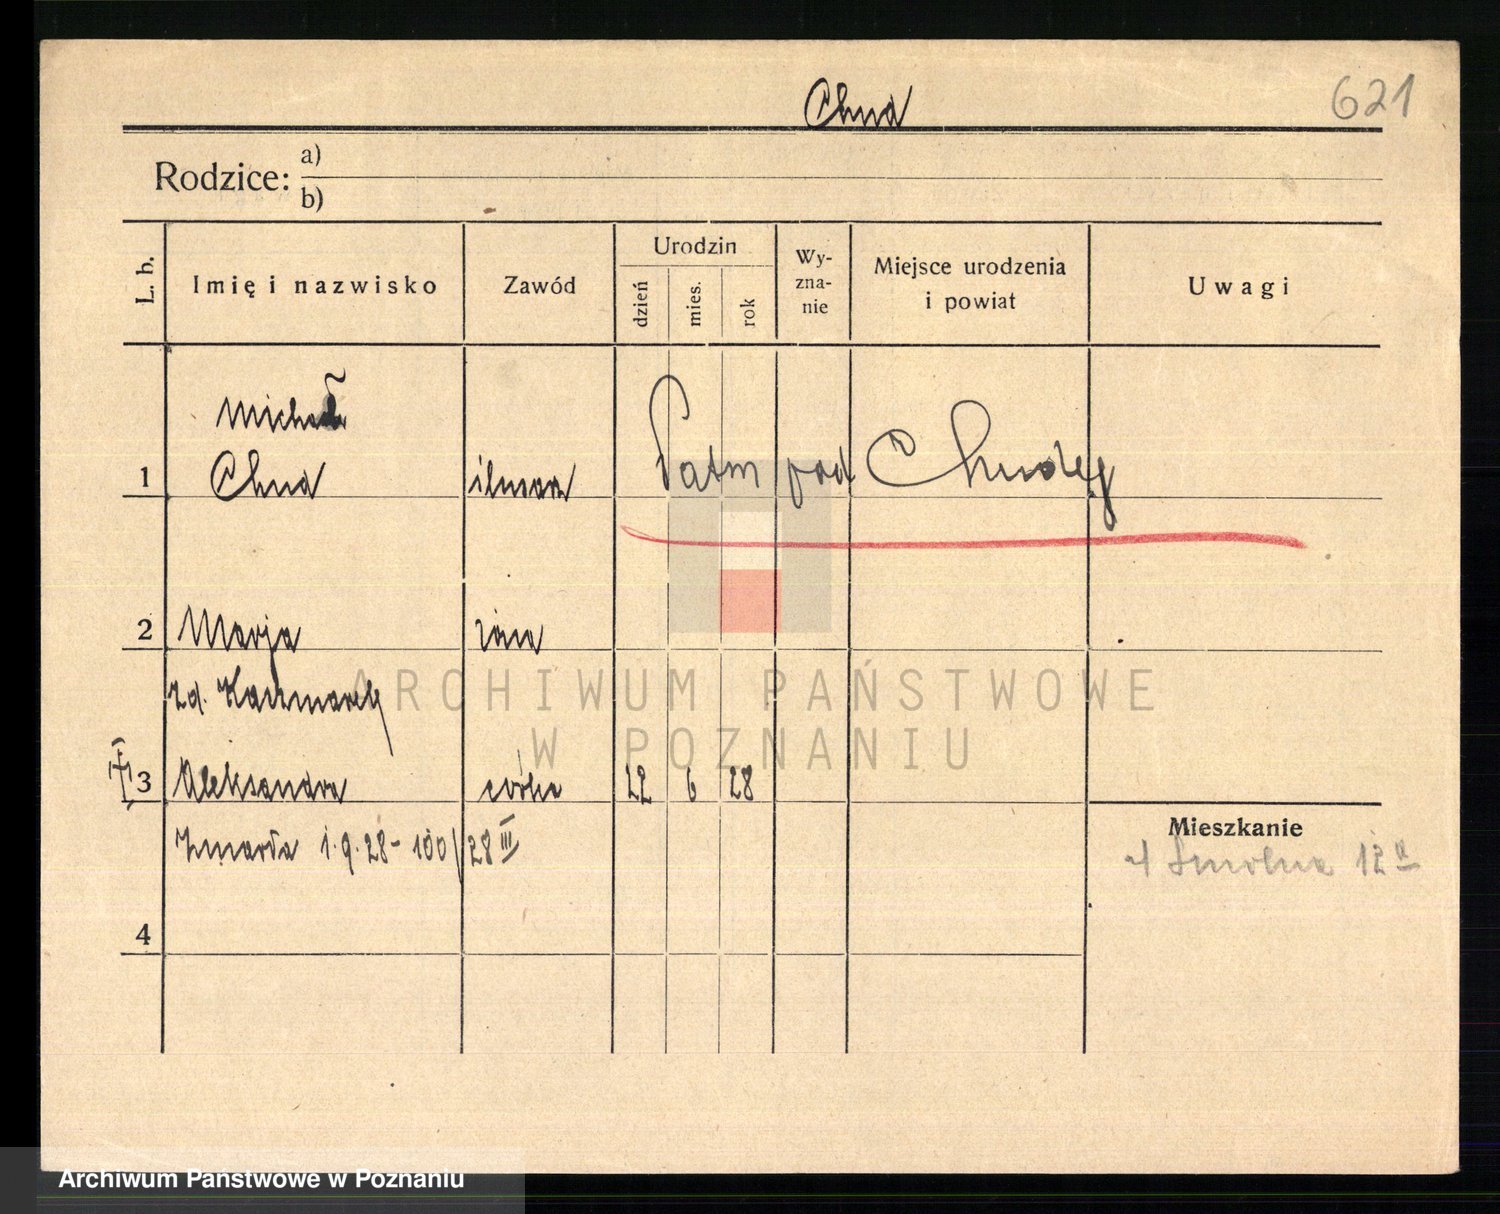 Chud
621
Rodzice:
a)
b)
L. b.
Imię i nazwisko
Zawód
Urodzin
dzień
mies.
rok
Wy-
zna-
nie
Miejsce urodzenia
i powiat
Uwagi
Michał
1
Chud
Patrz pod
2
Marja
żona
zd. Kaczmarek
3
Aleksandra
córka
22
6
28
Zmarła 1.9.28 - 100/28 III
Mieszkanie
Smolna 12a
4
ARCHIWUM PAŃSTWOWE
W POZNANIU
Archiwum Państwowe w Poznaniu